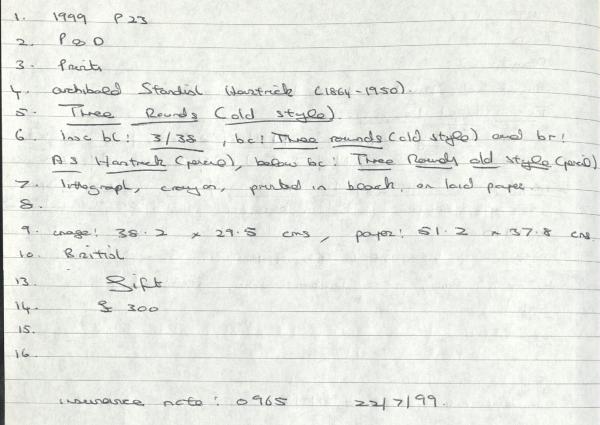 1. 1999 P23
2. P & D
3. Prints
4. Archibald Standish Hartrick (1864-1950).
5. Three Rounds (old style).
6. Insc bl: 3/38, bc: Three rounds (old style) and br:
AS Hartrick (pencil), below bc: Three Rounds old style (pencil)
7. Lithograph, crayon, printed in black, on laid paper.
8.
9. image: 38.2 x 29.5 cms, paper: 51.2 x 37.8 cms
10. British
13. Gift
14. £ 300
15.
16.
insurance note: 0965 22/7/99.